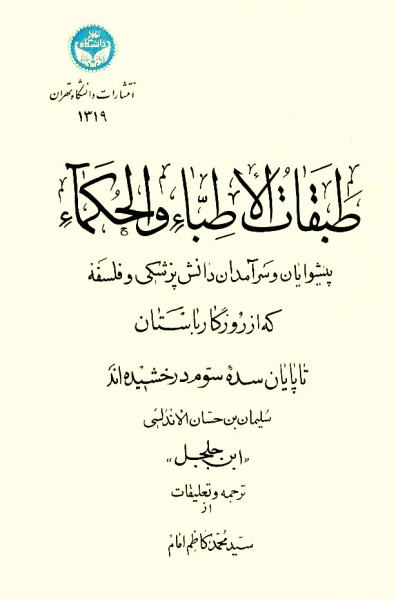 انتشارات دانشگاه تهران
۱۳۱۹
طَبَقاتُ الأطِبّاءِ وَالحُكَمآءِ
پیشوایان و سرآمدان دانش پزشکی و فلسفه
که از روزگار باستان
تا پایان سدهٔ سوّم درخشیده‌اند
سلیمان بن حسان الاندلسی
«ابن جلجل»
ترجمه و تعلیقات
از
سیّد محمّد کاظم امام